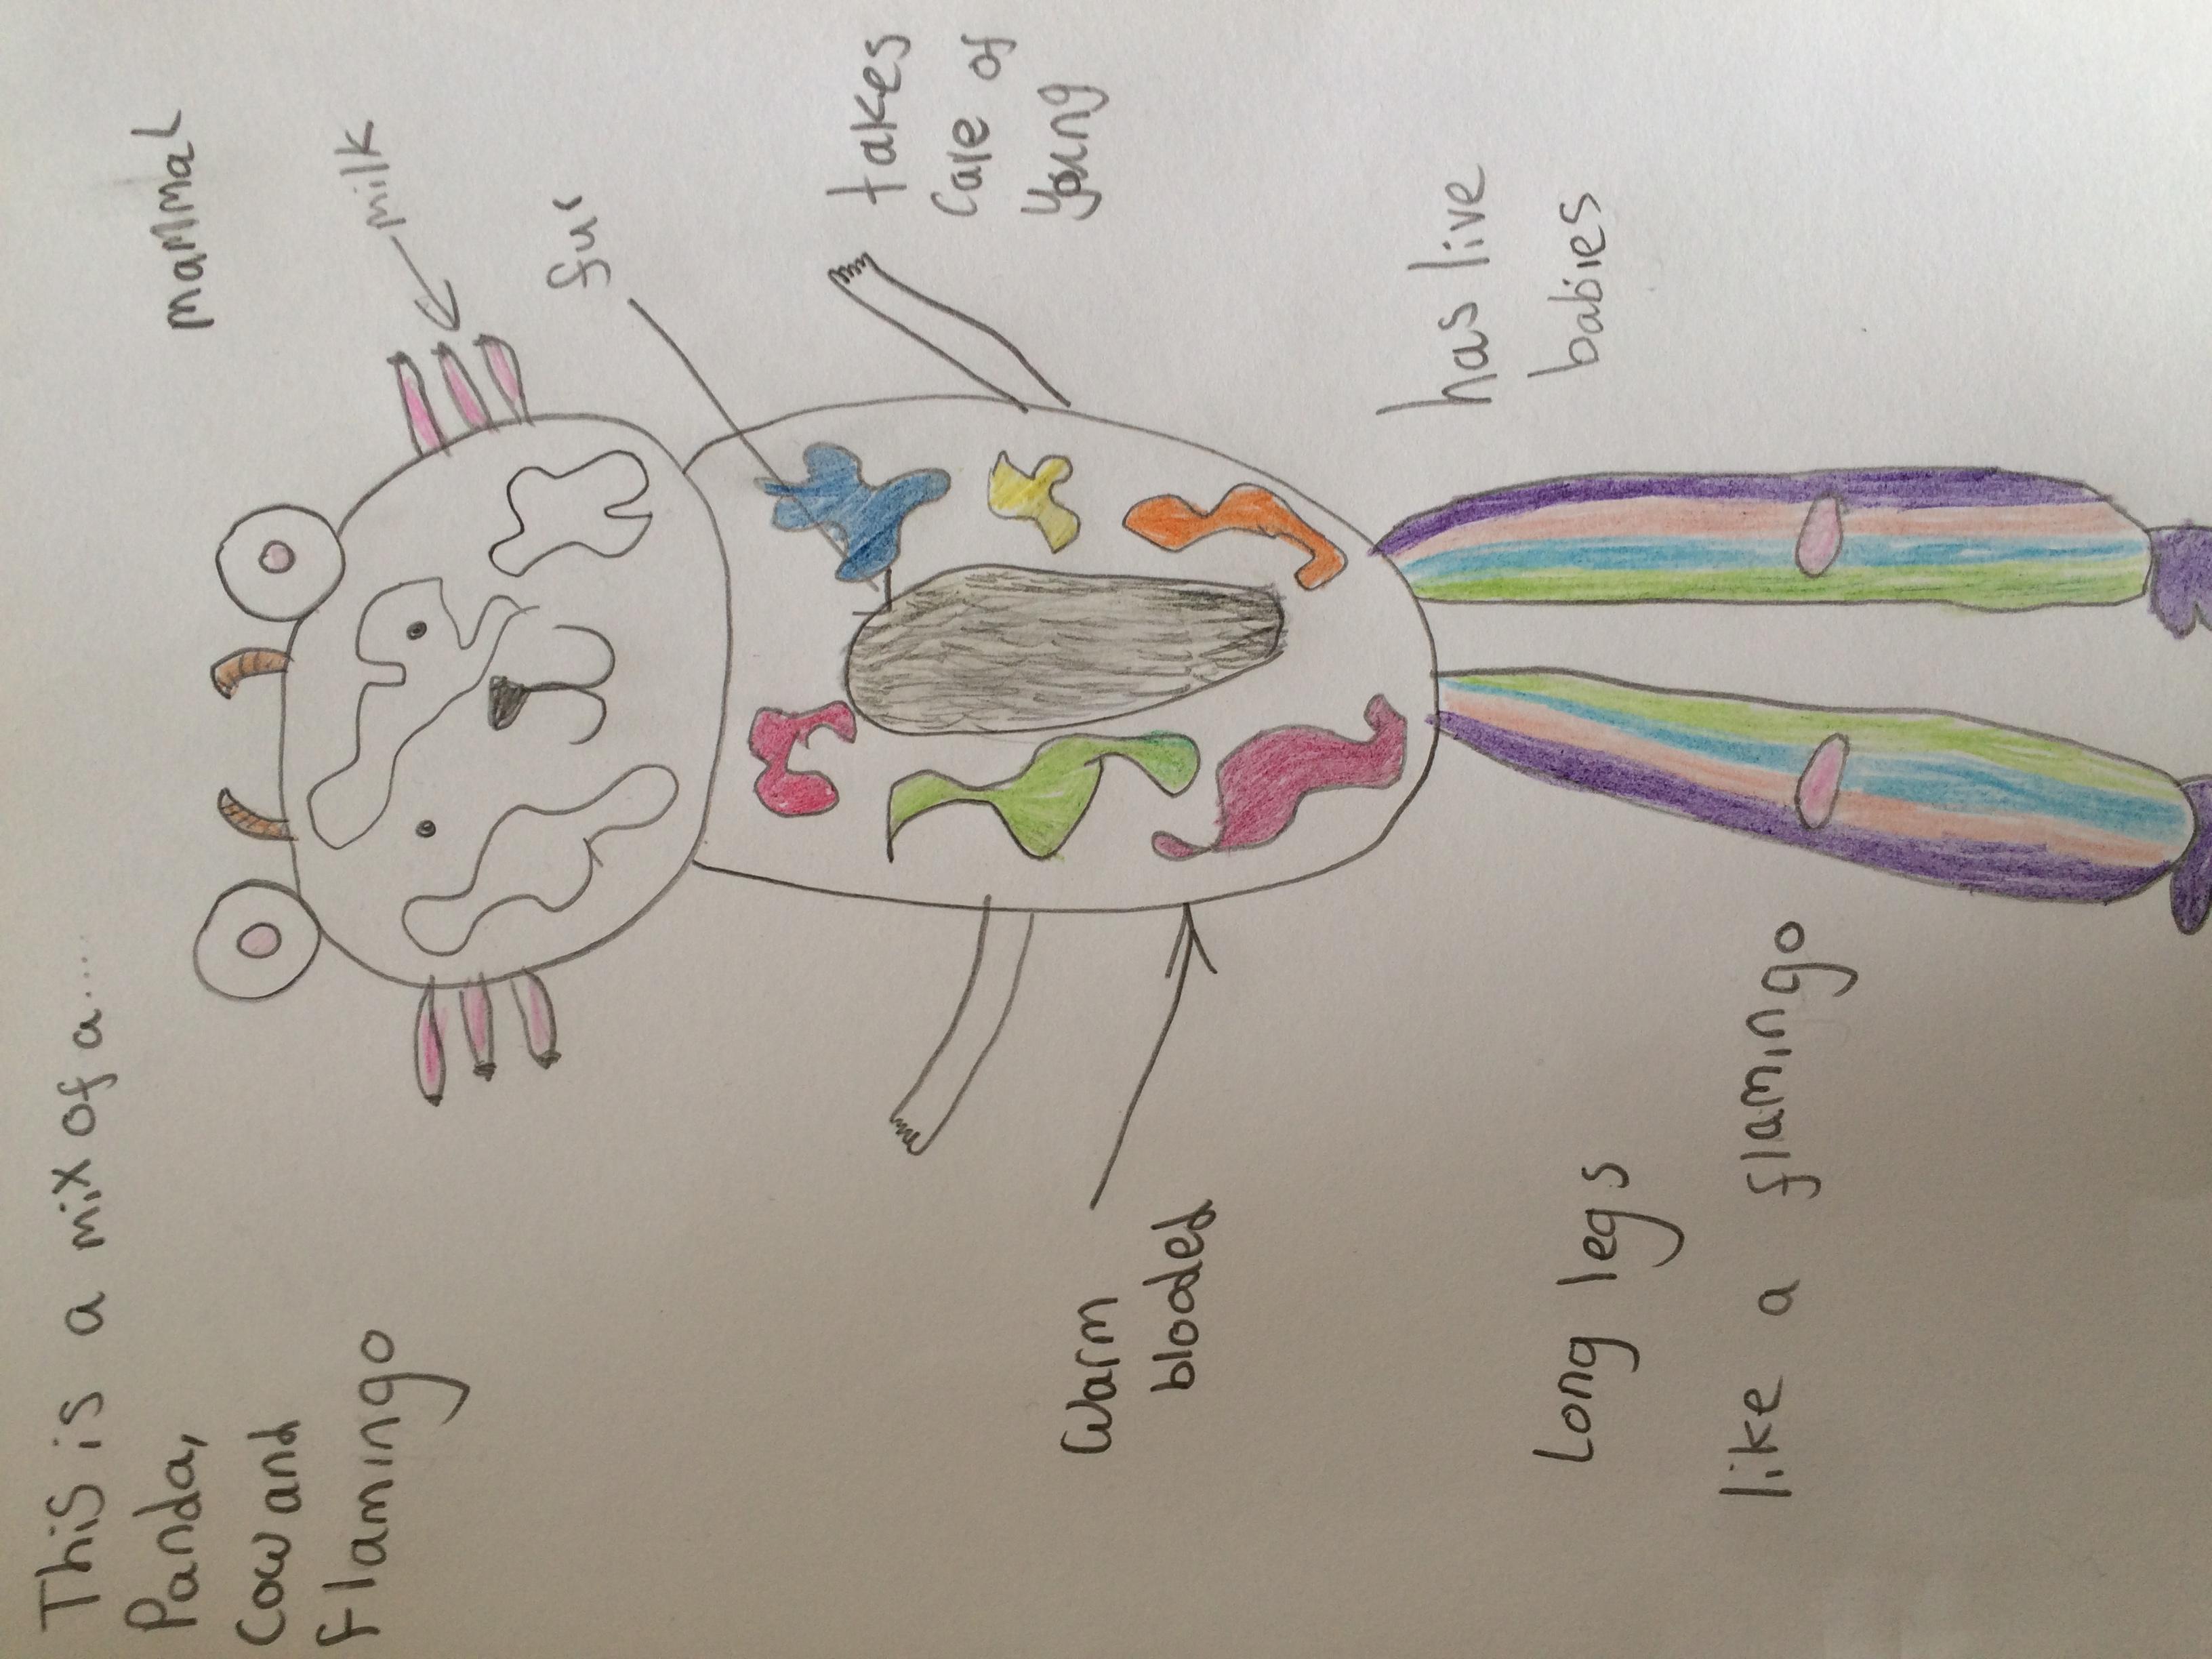 This is a mix of a....
Panda,
Cow and
Flamingo
mammal
milk
fur
takes
Care of
Young
Warm
bloded
has live
babies
Long legs
like a flamingo